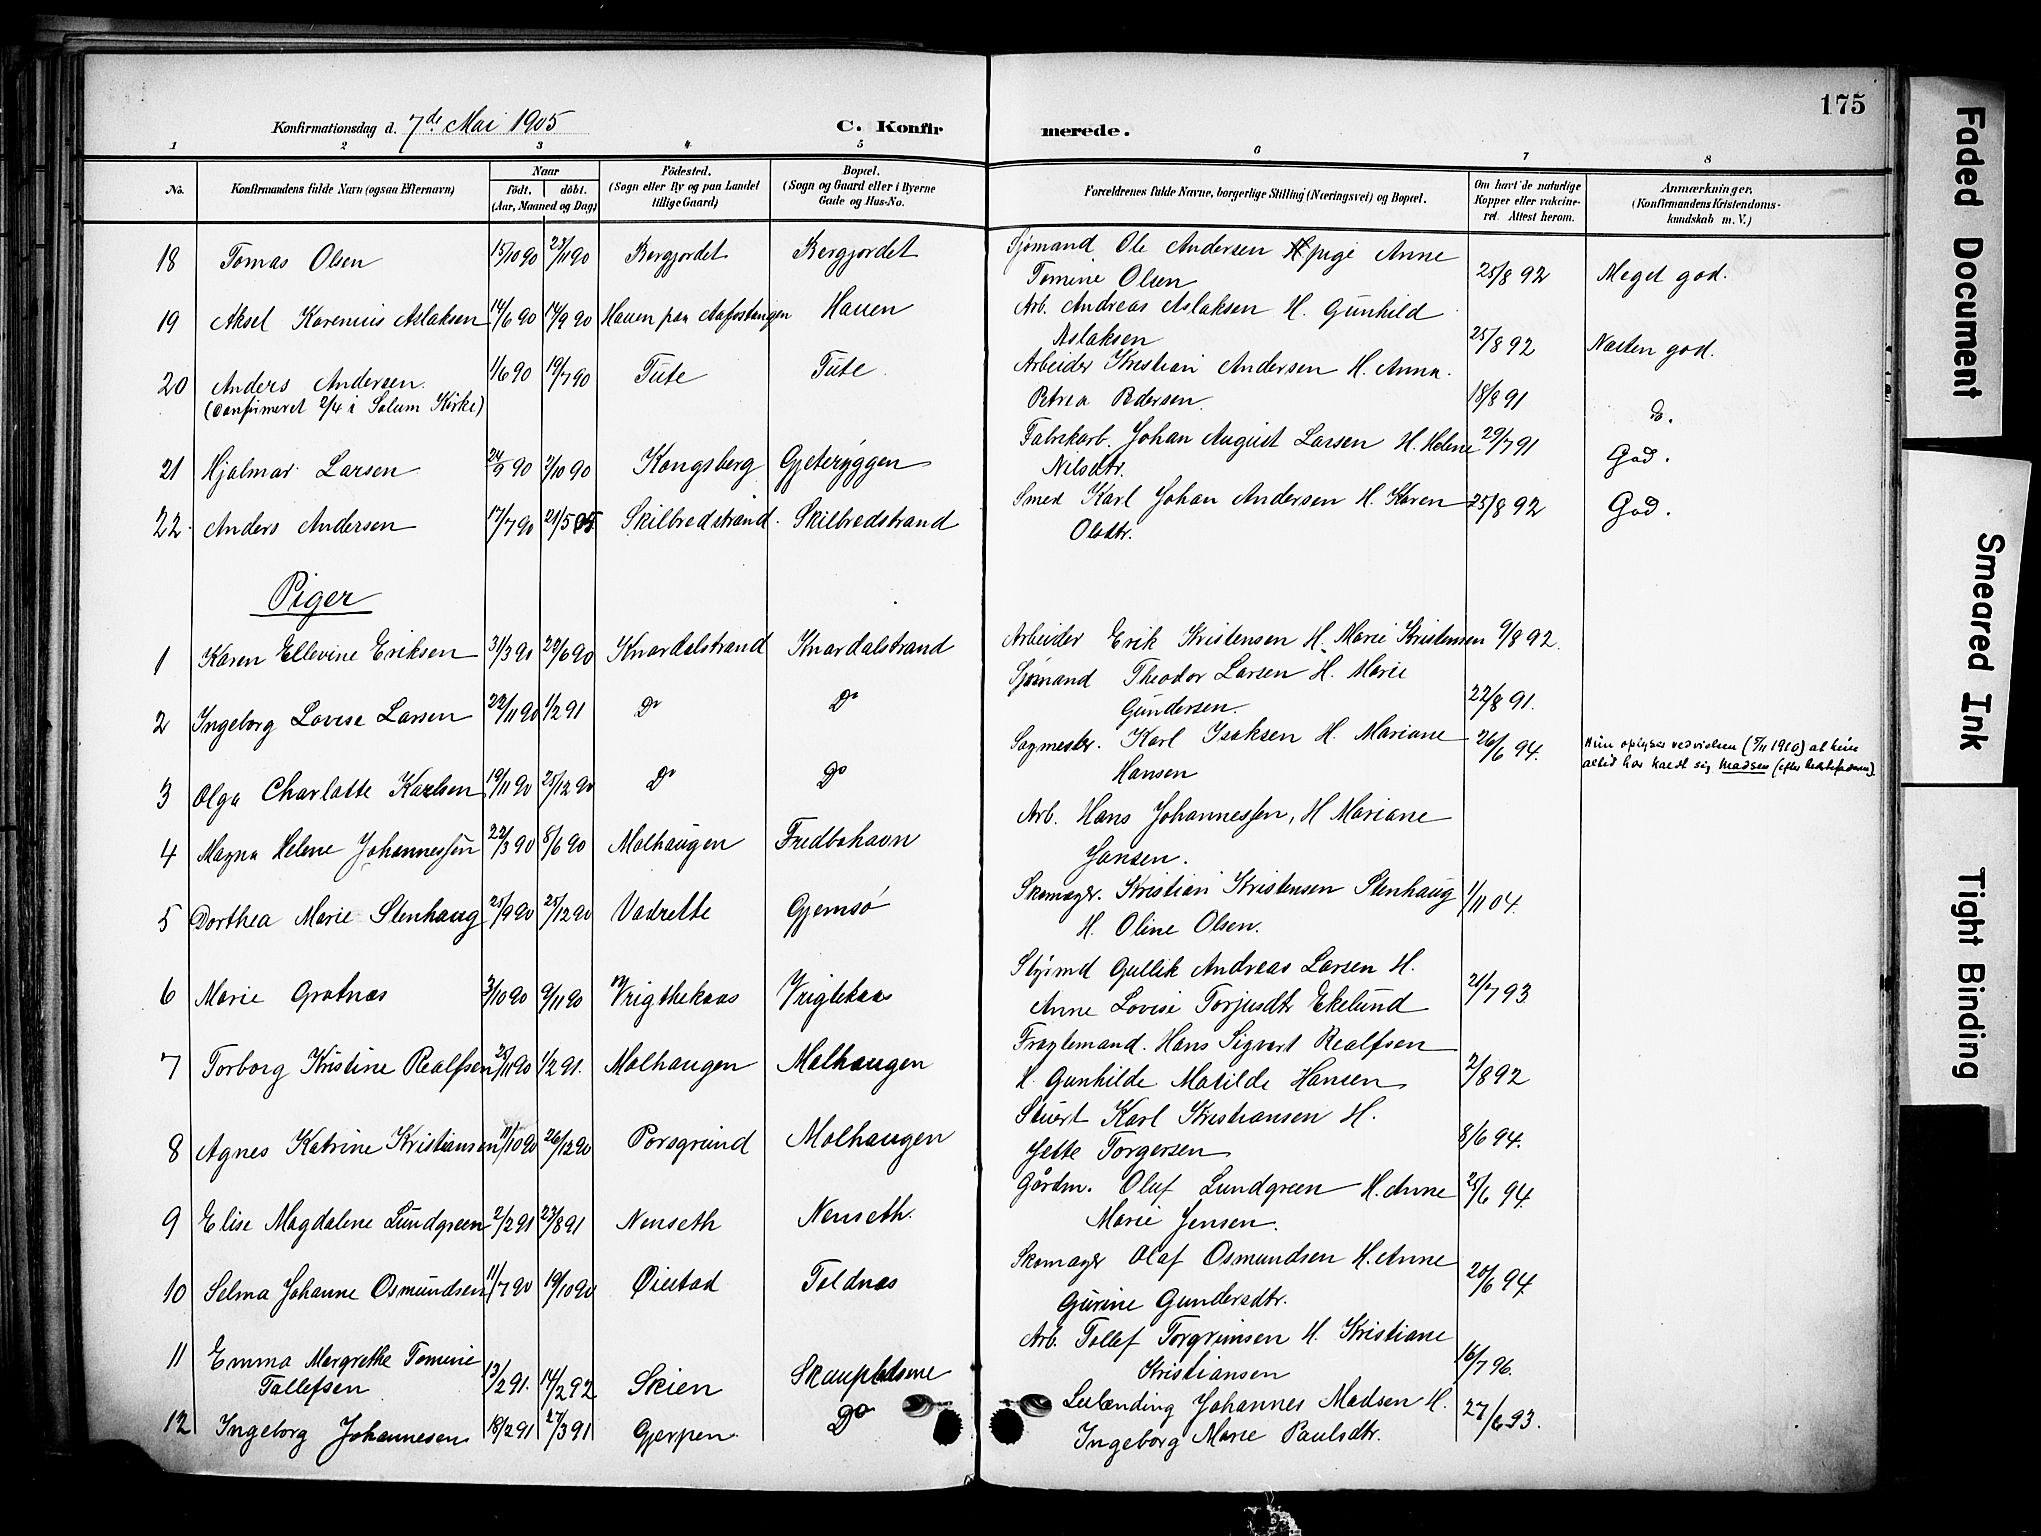 175
Konfirmationsdag d. 7de Mai 1905 C. Konfirmerede.
1 2 3 4 5 6 7 8
No. Konfirmandens fulde Navn (ogsaa Efternavn) Naar født. døbt. (Aar, Maaned og Dag) Fødested. (Sogn eller By og paa Landet tillige Gaard) Bopæl. (Sogn og Gaard eller i Byerne Gade og Hus-No. Forældrenes fulde Navne, borgerlige Stilling (Næringsvei) og Bopæl. Om havt de naturlige Kopper eller vaccineret. Attest herom. Anmærkninger. (Konfirmandens Kristendomskundskab m. V.)
18 Tomas Olsen 15/10 90 23/11 90 Bergjordet Bergjordet Sjømand Ole Andersen pige Anne Tomine Olsen 25/8 92 Meget god.
19 Aksel Karenius Aslaksen 14/6 90 14/9 90 Hauen paa Aafostangen Hauen Arb. Andreas Aslaksen H. Gunhild Aslaksen 25/8 92 Næsten god.
20 Anders Andersen (confirmeret 2/4 i Solum Kirke) 1/6 90 19/7 90 Tufte Tufte Arbeider Kristian Andersen H. Anna Petrea Pedersen 18/8 91 Do.
21 Hjalmar Larsen 24/9 90 7/10 90 Kongsberg Gjeteryggen Fabrikarb. Johan August Larsen H. Helene Nilsdtr. 29/7 91 God.
22 Anders Andersen 17/7 90 21/5 05 Skilbredstrand Skilbredstrand Smed Karl Johan Andersen H. Karen Olsdtr. 25/8 92 God.
Piger
1 Karen Ellevine Eriksen 31/3 90 22/6 90 Knardalstrand Knardalstrand Arbeider Erik Kristensen H. Marie Kristensen 9/8 92.
2 Ingeborg Lovise Larsen 22/11 90 1/2 91 Do Do Sjømand Theodor Larsen H. Marie Gundersen. 22/8 91.
3 Olga Charlotte Karlsen 19/11 90 25/12 90 Do Do Sagmester. Karl Isaksen H. Mariane Hansen 26/6 94. Hun oplyser ved vielsen (5/11 1910) at hun altid har kaldt sig Madsen (efter bedstefaderen)
4 Magna Helene Johannessen 22/3 90 8/6 90 Molhaugen Fredbohavn Arb. Hans Johannessen, H Mariane Jansen.
5 Dorthea Marie Stenhaug 25/9 90 25/12 90 Vadrette Gjemsø Skomager. Kristian Kristensen Stenhaug H. Oline Olsen. 1/11 04.
6 Marie Grotnæs 3/10 90 9/11 90 Vrigthekaas Vrigtekaas Styrmd Gullik Andreas Larsen H. Anne Lovise Torjusdtr Ekelund 21/7 93
7 Torborg Kristine Realfsen 25/11 90 1/2 91. Molhaugen Molhaugen Fragtemand. Hans Sigvart Realfsen H. Gunhilde Matilde Hansen 2/8 92
8 Agnes Katrine Kristiansen 11/10 90 26/12 90 Porsgrund Molhaugen Stuert Karl Kristiansen H. Jette Torgersen 8/6 94.
9 Elise Magdalene Lundgreen 2/2 91 23/8 91 Nenseth Nenseth. Gårdm. Oluf Lundgreen H. Anne Marie Jensen. 25/6 94
10 Selma Johanne Osmundsen 11/7 90 19/10 90 Øiestad Toldnæs Skomager Olaf Osmundsen H. Anne Gurine Gundersdtr. 20/6 94
11 Emma Margrethe Tomine Tallefsen 13/2 91. 14/2 92 Skien Skaupladsene Arb. Tollef Torgrimsen H. Kristiane Kristiansen 16/7 96.
12 Ingeborg Johannesen 18/2 91 27/3 91 Gjerpen Do Leilænding Johannes Madsen H. Ingeborg Marie Paulsdtr. 27/6 93.
Faded Document
Smeared Ink
Tight Binding